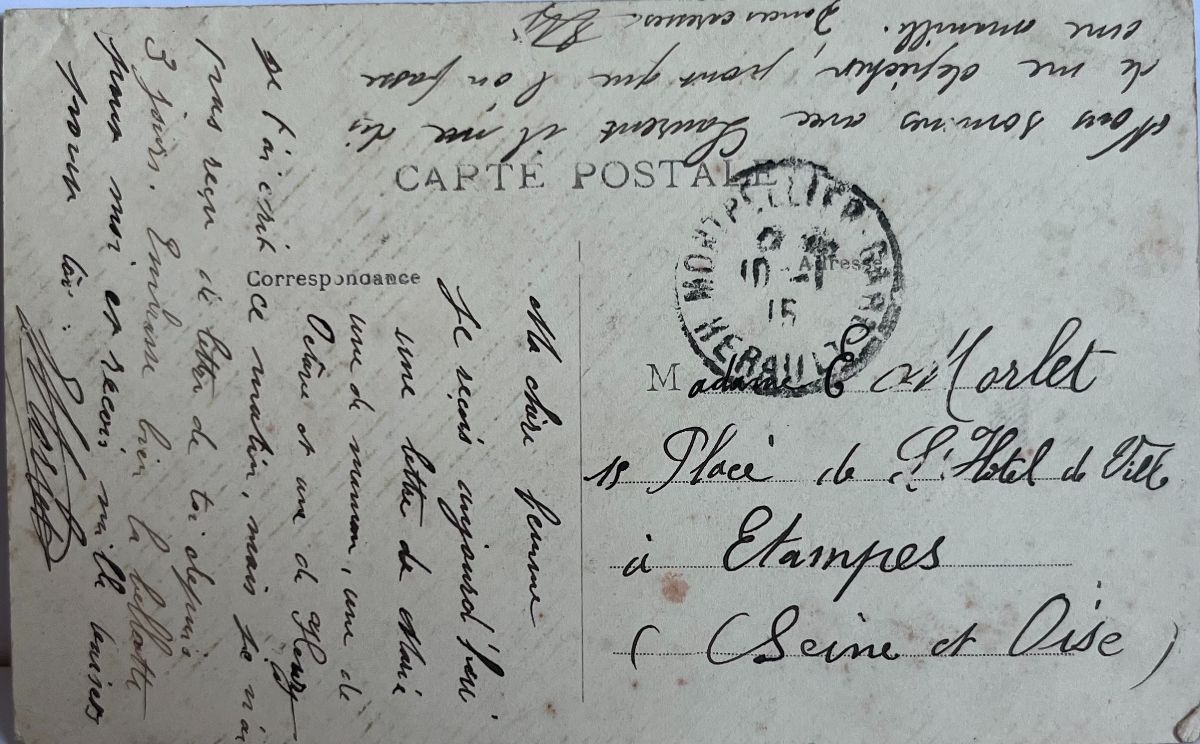 CARTE POSTALE
Correspondance
Adresse
Ma chère femme
Je reçois aujourd'hui
une lettre de Marie
une de maman, une de
Octave et une de Henry
Je t'ai écrit ce matin, mais je n'ai
pas reçu de lettre de toi depuis
3 jours. Embrasse bien la billotte
pour moi et reçois mille baisers
pour toi.
Morlet
Nous sommes avec Laurent il me dit
de me dépêcher, pour que l'on fasse
une manille. Douces caresses
MONTPELLIER-GARE
10 -1
15
HERAULT
Madame E Morlet
15 Place de L'Hotel de Ville
à Etampes
(Seine et Oise)